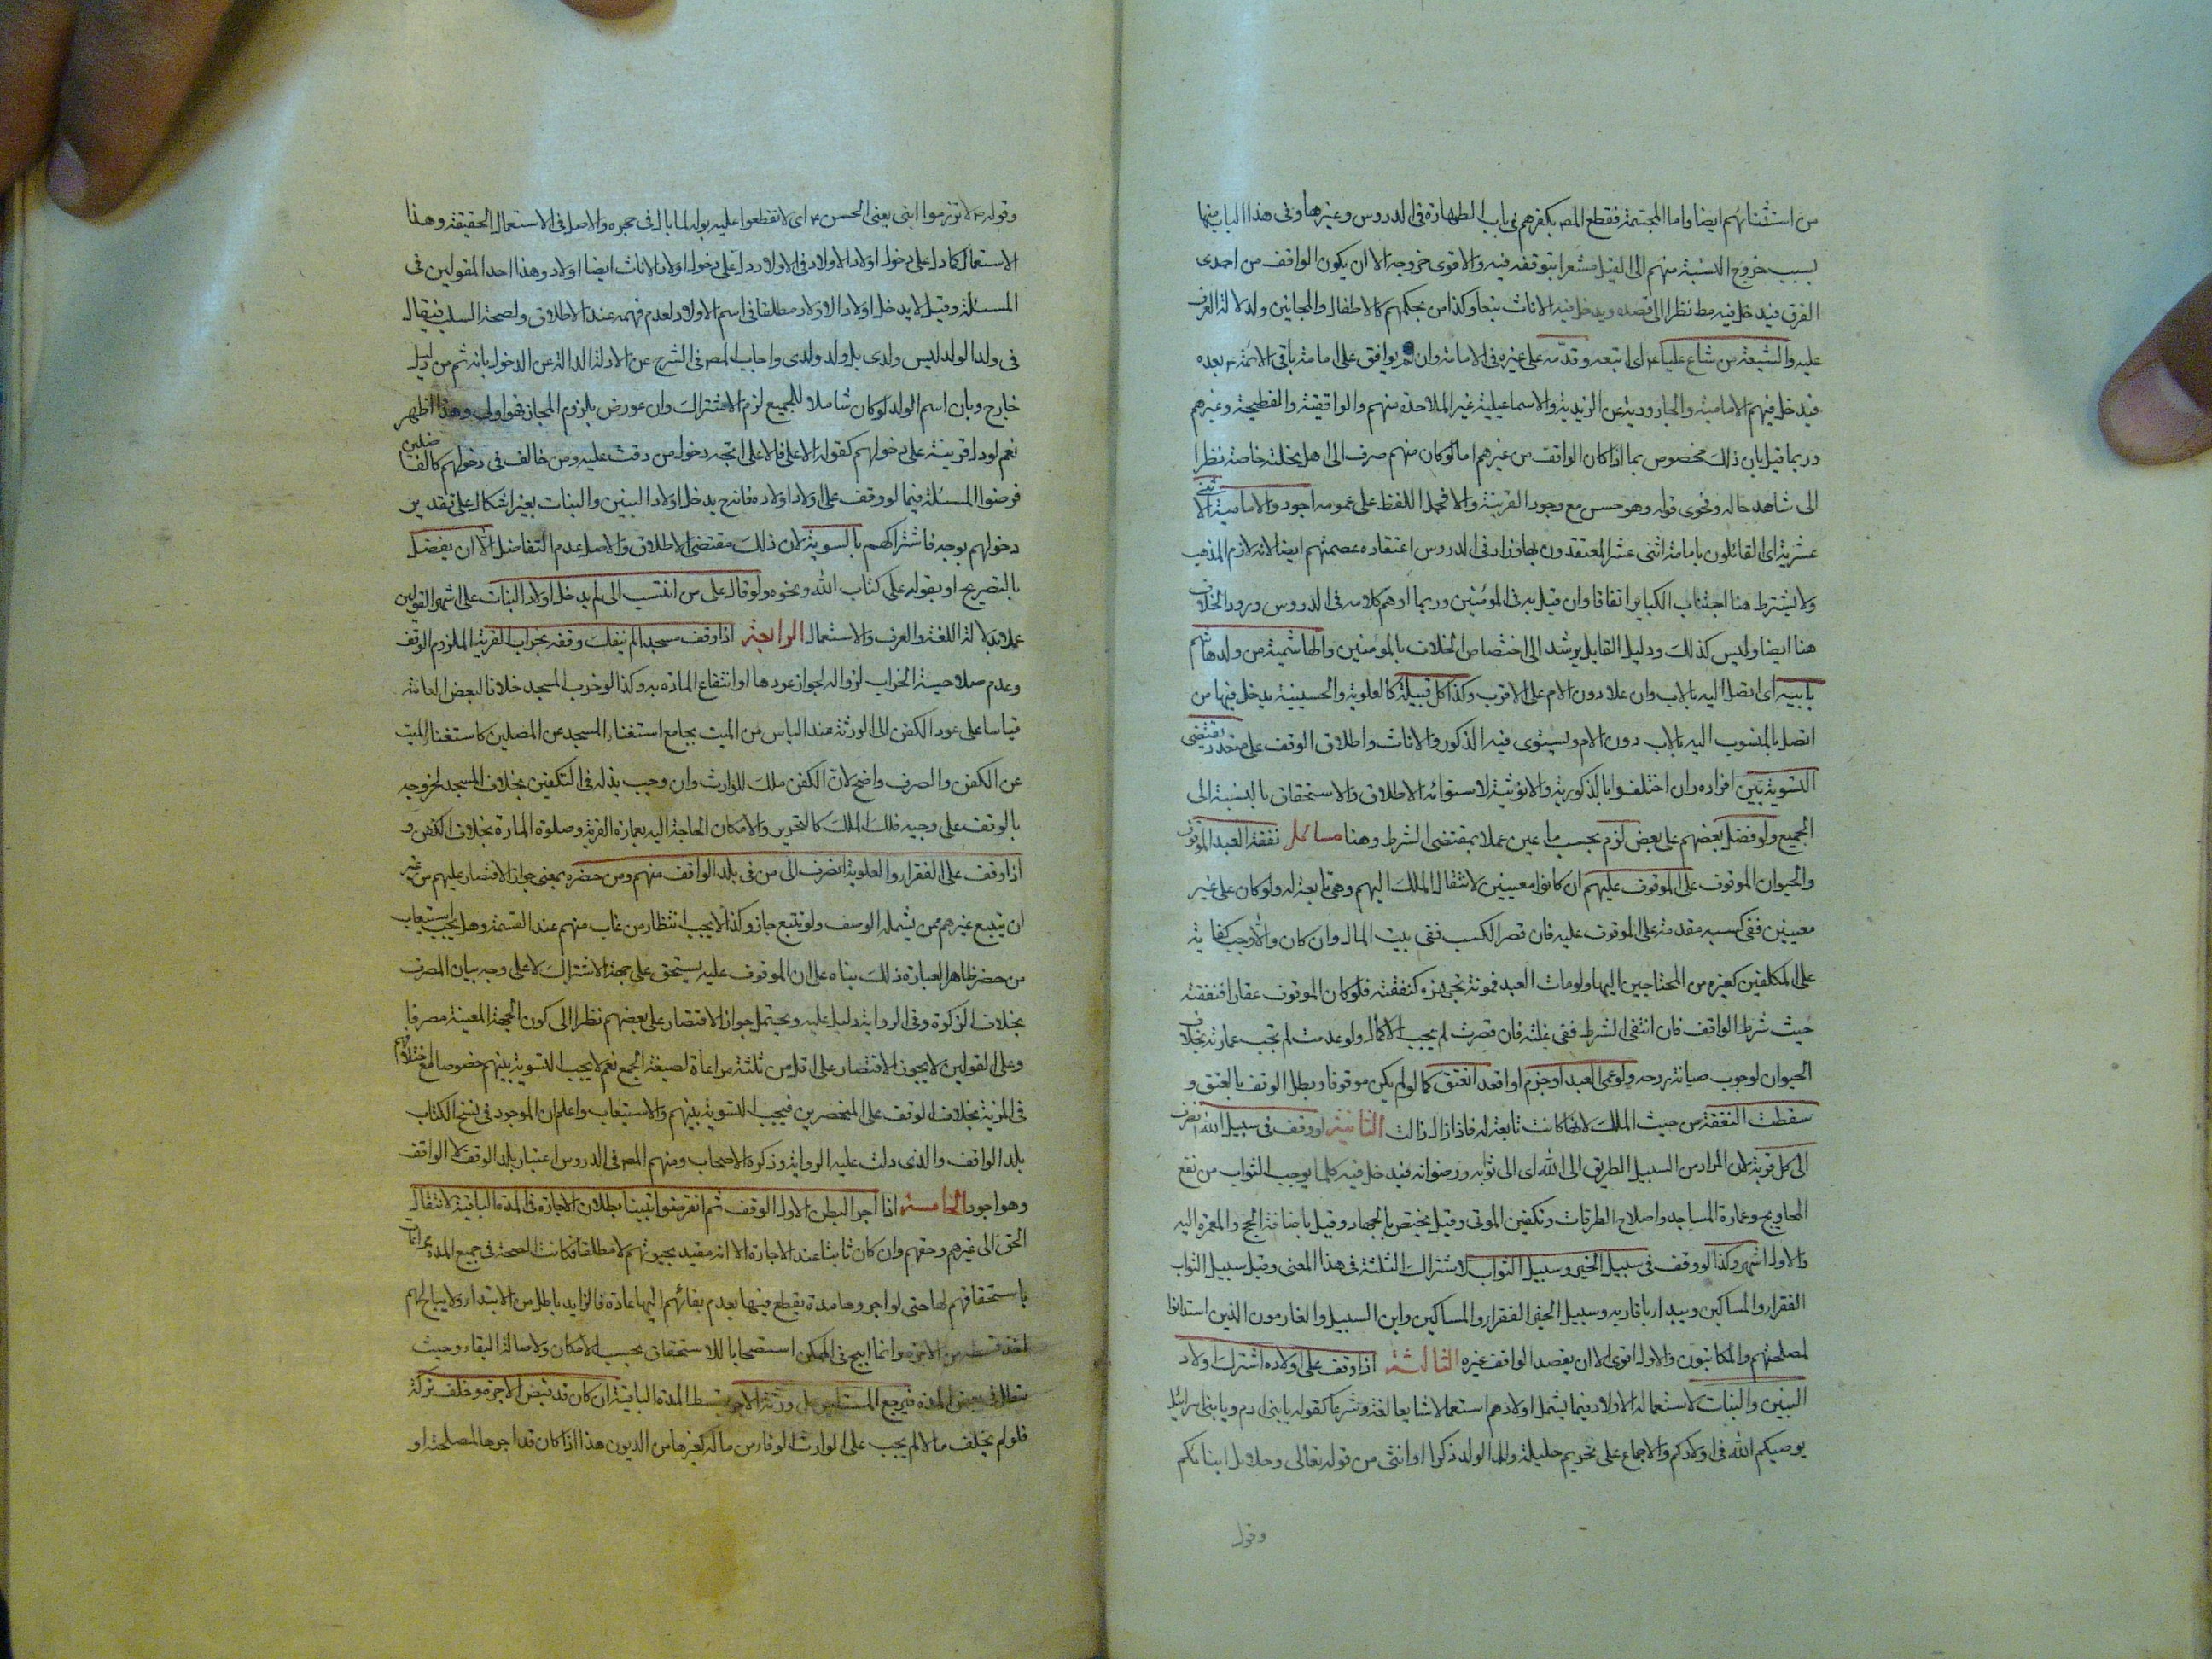 من استثنائهم ايضا واما المجسمة فقطع المصـ بكفرهم فى باب الطهارة فى الدروس وغيرها وفى هذا الباب منها
بسبب خروج المشبهة منهم الى القبل مشعرا بتوقفه فيه والاقوى خروجه الا ان يكون الواقف من احدى
الفرق فيدخل فيه مط نظرا الى قصده ويدخل فيه الاناث تبعا وكذا من بحكمهم كالاطفال والمجانين ولدلالة العرف
عليه والشيعة من شاع عليا ع اى اتبعه وقدمه على غيره فى الامامة وان لم يوافق على امامة باقى الائمة ع بعده
فيدخل فيهم الامامية والجارودية من الزيدية والاسماعيلية غير الملاحدة منهم والواقفية والفطحية وغيرهم
وربما قيل بان ذلك مخصوص بما اذا كان الواقف من غيرهم اما لو كان منهم صرف الى اهل نحلته خاصة نظرا
الى شاهد حاله وفحوى قوله وهو حسن مع وجود القرينة والا فحمل اللفظ على عمومه اجود والامامية الاثنى
عشرية اى القائلون بامامة اثنى عشر المعتقدون بها وزاد فى الدروس اعتقاده عصمتهم ايضا لانه لازم المذهب
ولا يشترط هنا اجتناب الكباير اتفاقا وان قيل به فى المؤمنين وربما اوهم كلامه فى الدروس ورود الخلاف
هنا ايضا وليس كذلك ودليل القايل يرشد الى اختصاص الخلاف بالمومنين والهاشمية من ولده هاشم
بابيه اى اتصل اليه بالاب وان علا دون الام على الاقرب وكذا كل قبيلة كالعلوية والحسينية يدخل فيها من
اتصل بالمنسوب اليه بالاب دون الام ويستوى فيه الذكور والاناث واطلاق الوقف على متعدد يقتضى
التسوية بين افراده وان اختلفوا بالذكورية والانوثية لاستوائه الاطلاق والاستحقاق بالنسبة الى
الجميع ولو فضل بعضهم على بعض لزم بحسب ما عين عملا بمقتضى الشرط وهنا مسائل نفقة العبد الموقوف
والحيوان الموقوف على الموقوف عليهم ان كانوا معينين لانتقال الملك اليهم وهى تابعة له ولو كان على غير
معينين ففى كسبه مقدمة على الموقوف عليه فان قصر الكسب ففى بيت المال وان كان والا وجب كفاية
على المكلفين كغيره من المحتاجين اليها ولو مات العبد فمونة تجهيزه كنفقته فلو كان الموقوف عقارا فنفقته
حيث شرط الواقف فان انتفى الشرط ففى غلته فان قصرت لم يجب الاكمال ولو عدمت لم تجب عمارته بخلاف
الحيوان لوجوب صيانة روحه ولو عمى العبد او جزم او اقعد انعتق كما لو لم يكن موقوفا وبطل الوقف بالعتق و
سقطت النفقة من حيث الملك لانها كانت تابعة له فاذا زال زالت الثانية لو وقف فى سبيل الله انصرف
الى كل قربة لان المراد من السبيل الطريق الى الله اى الى ثوابه ورضوانه فيدخل فيه كلما يوجب الثواب من نفع
المحاويج وعمارة المساجد واصلاح الطرقات وتكفين الموتى وقيل يختص بالجهاد وقيل باضافة الحج والعمرة اليه
والاول اشهر وكذا لو وقف فى سبيل الخير وسبيل الثواب لاشتراك الثلثة فى هذا المعنى وقيل سبيل الثواب
الفقراء والمساكين ويبدا باقاربه وسبيل الخير الفقراء والمساكين وابن السبيل والغارمون الذين استدانوا
لمصلحتهم والمكاتبون والاول اقوى الا ان يقصد الواقف غيره الثالثة اذا وقف على اولاده اشترك اولاد
البنين والبنات لاستعمال الاولاد فيما يشمل اولادهم استعمالا شايعا لغة وشرعا كقوله يا بنى ادم ويا بنى اسرائيل
يوصيكم الله فى اولادكم والاجماع على تحريم حليلة ولد الولد ذكرا او انثى من قوله تعالى وحلائل ابنائكم
وقول
وقوله ع لا تزرموا ابنى يعنى الحسن ع اى لا تقطعوا عليه بوله لما بال فى حجره والاصل فى الاستعمال الحقيقة وهذا
الاستعمال كما دل على دخول اولاد الاولاد فى الاولاد دل على دخول اولاد الاناث ايضا اولاد وهذا احد القولين فى
المسئلة وقيل لا يدخل اولاد الاولاد مطلقا فى اسم الاولاد لعدم فهمه عند الاطلاق ولصحة السلب فيقال
فى ولد الولد ليس ولدى بل ولد ولدى واجاب المصـ فى الشرح عن الادلة الدالة عن الدخول بانه ثم من دليل
خارج وبان اسم الولد لو كان شاملا للجميع لزم الاشتراك وان عورض بلزوم المجاز فهو اولى وهذا اظهر
نعم لو دل قرينة على دخولهم كقوله الاعلى فالاعلى اتجه دخول من دلت عليه ومن خالف فى دخولهم كالفاضلين
فرضوا المسئلة فيما لو وقف على اولاد اولاده فانه ح يدخل اولاد البنين والبنات بغير اشكال وعلى تقدير
دخولهم بوجه فاشتراكهم بالسوية لان ذلك مقتضى الاطلاق والاصل عدم التفاضل الا ان يفضل
بالتصريح او بقوله على كتاب الله ونحوه ولو قال على من انتسب الى لم يدخل اولاد البنات على اشهر القولين
عملا بدلالة اللغة والعرف والاستعمال الرابعة اذا وقف مسجدا لم ينفك وقفه بخراب القرية الملزوم الوقف
وعدم صلاحية الخراب لزواله لجواز عودها او انتفاع المارة به وكذا لو خرب المسجد خلافا لبعض العامة
قياسا على عود الكفن الى الورثة عند الياس من الميت بجامع استغناء المسجد عن المصلين كاستغناء الميت
عن الكفن والصرف واضح لان الكفن ملك للوارث وان وجب بذله فى التكفين بخلاف المسجد لخروجه
بالوقف على وجهه فك الملك كالتحرير ولامكان الحاجة اليه بعمارة القرية وصلوة المارة بخلاف الكفن و
اذا وقف على الفقراء والعلوية انصرف الى من فى بلد الواقف منهم ومن حضره بمعنى جواز الاقتصار عليهم من غير
ان يتتبع غيرهم ممن يشمله الوصف ولو تتبع جاز وكذا لا يجب انتظار من غاب منهم عند القسمة وهل يجب استيعاب
من حضر ظاهر العبارة ذلك بناء على ان الموقوف عليه يستحق على جهة الاشتراك لا على وجه بيان المصرف
بخلاف الزكوة وفى الرواية دليل عليه ويحتمل جواز الاقتصار على بعضهم نظرا الى كون الجهة المعينة مصرفا
وعلى القولين لا يجوز الاقتصار على اقل من ثلثة مراعاة لصيغة الجمع نعم لا يجب التسوية بينهم خصوصا مع اختلافهم
فى المزية بخلاف الوقف على المنحصرين فيجب التسوية بينهم والاستيعاب واعلم ان الموجود فى نسخ الكتاب
بلد الواقف والذى دلت عليه الرواية وذكره الاصحاب ومنهم المصـ فى الدروس اعتبار بلد الوقف لا الواقف
وهو اجود الخامسة اذا اجر البطن الاول الوقف ثم انقرضوا تبينا بطلان الاجارة فى المدة الباقية لانتقال
الحق الى غيرهم وحقهم وان كان ثابتا عند الاجارة الا انه مقيد بحيوتهم لا مطلقا فكانت الصحة فى جميع المدة مراعاة
باستحقاقهم لها حتى لو اجروها مدة يقطع فيها بعدم بقائهم اليها عادة فالزايد باطل من الابتداء ولا يباح لهم
اخذ قسطه من الاجرة وانما ابيح فى الممكن استصحابا للاستحقاق بحسب الامكان ولاصالة البقاء وحيث
تبطل فى بعض المدة فيرجع المستاجر على ورثة الاجر بقسط المدة الباقية ان كان قد قبض الاجرة وخلف تركة
فلو لم يخلف مالا لم يجب على الوارث الوفاء من ماله كغيرها من الديون هذا اذا كان قد اجرها لمصلحته او